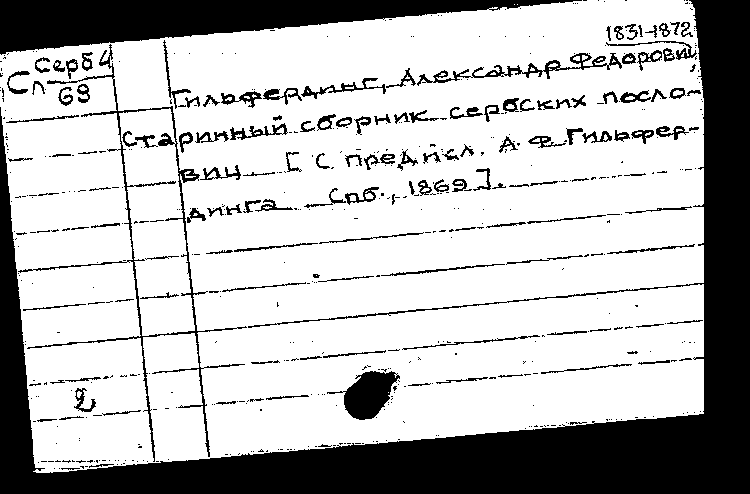 1831-1872
Серб 4
Сп 69
Гильфердинг, Александр Федорович,
Старинный сборник сербских посло-
виц. [ С предисл. А. Ф. Гильфер-
динга Спб., 1869 ].
2